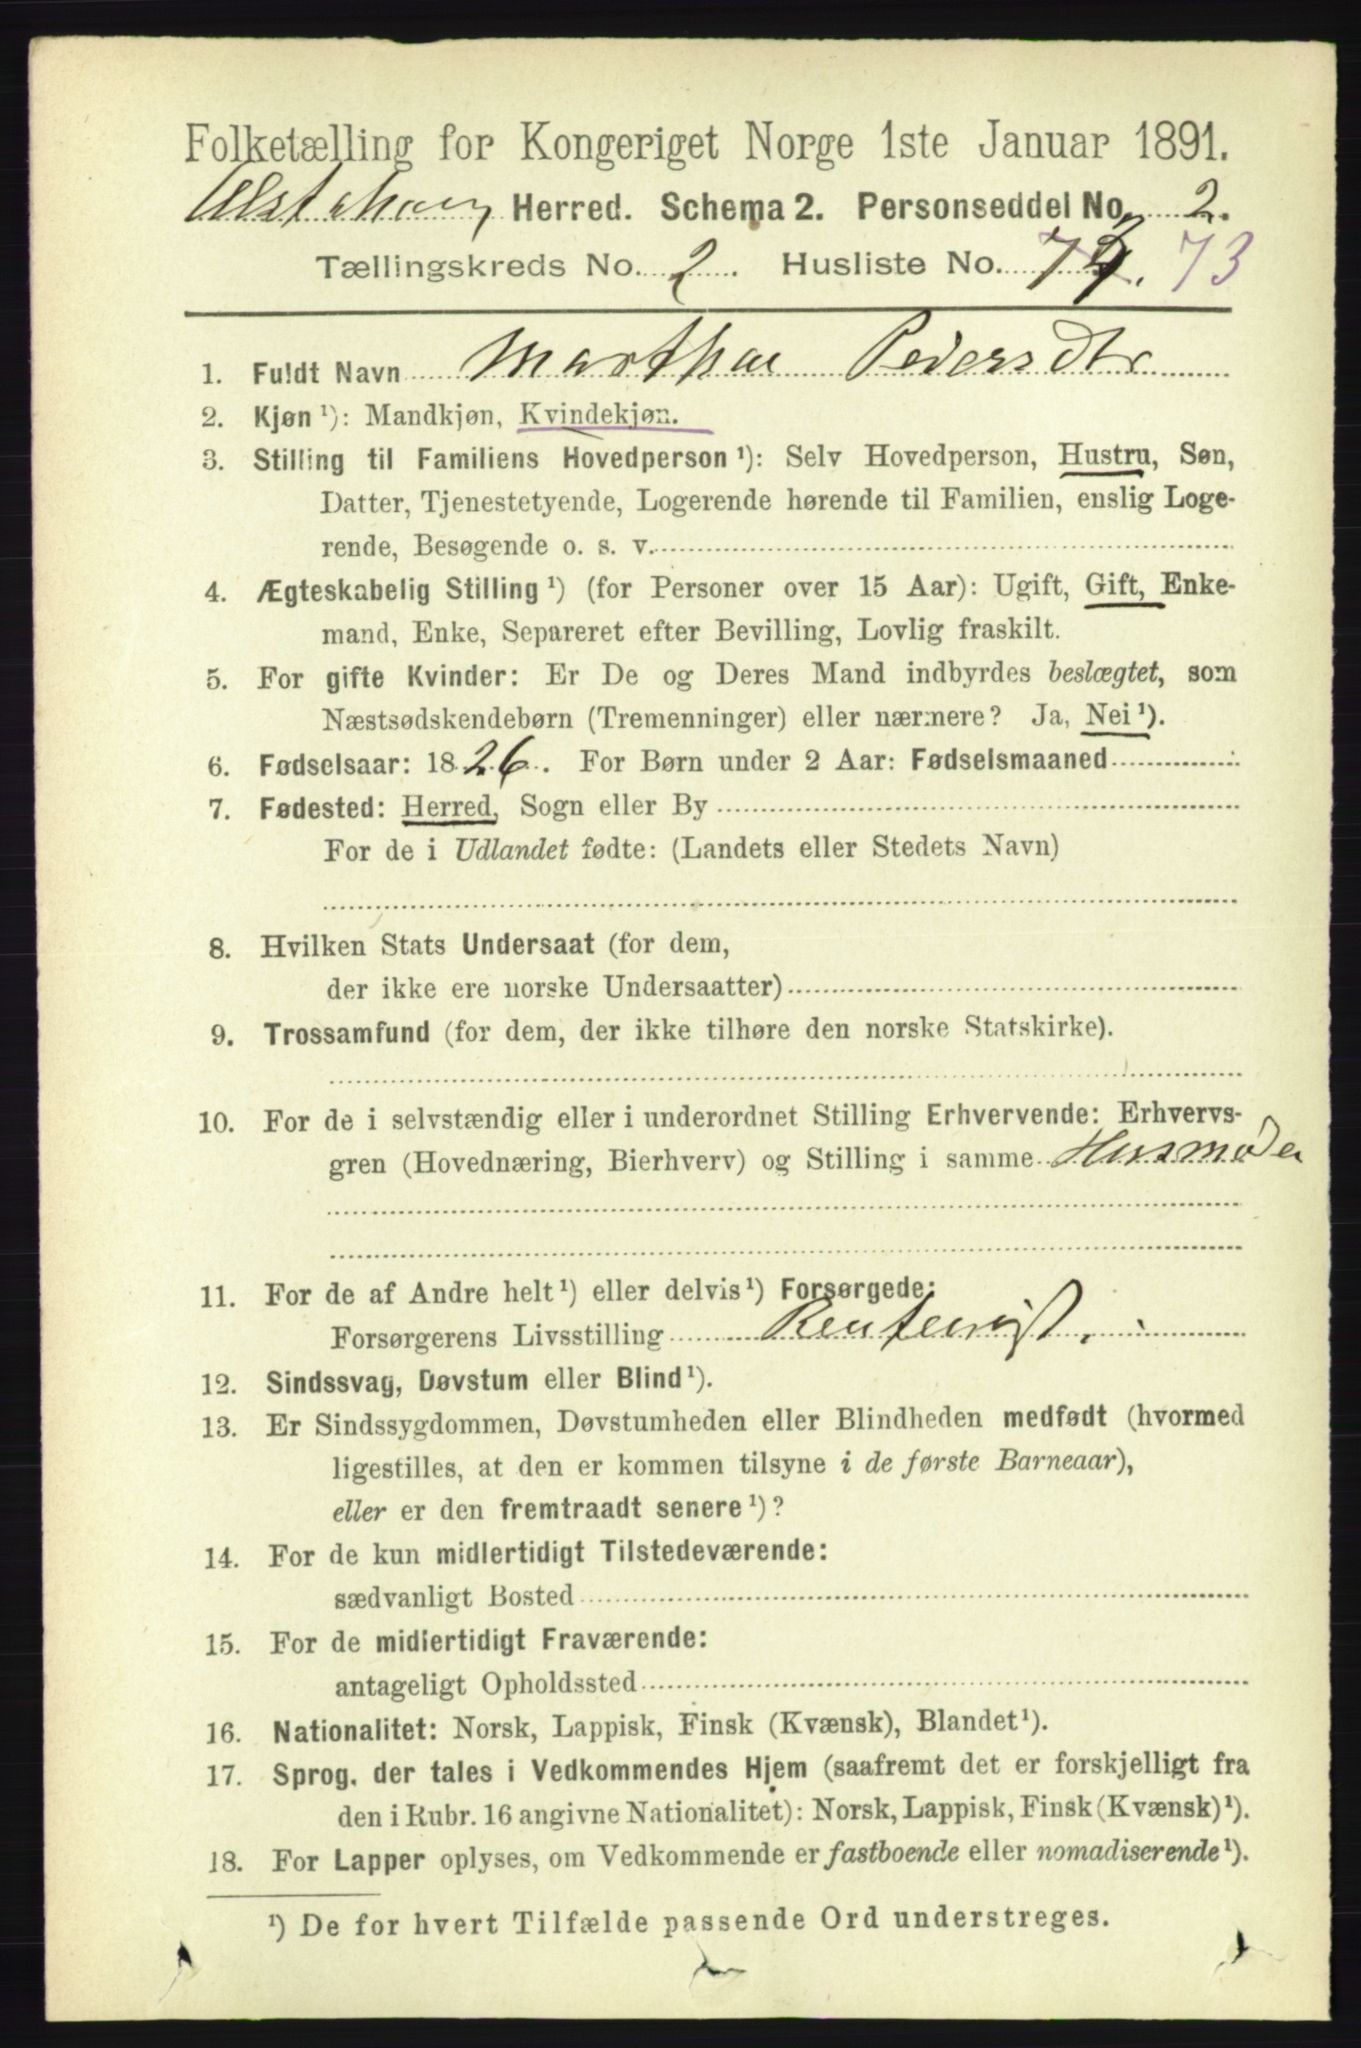 Folketælling for Kongeriget Norge 1ste Januar 1891.
Alstahoug Herred. Schema 2. Personseddel No. 2.
Tællingskreds No. 2. Husliste No. 73
1. Fuldt Navn Marthae Pedersdtr
2. Kjøn ¹): Mandkjøn, Kvindekjøn.
3. Stilling til Familiens Hovedperson ¹): Selv Hovedperson, Hustru, Søn,
Datter, Tjenestetyende, Logerende hørende til Familien, enslig Loge-
rende, Besøgende o. s. v.
4. Ægteskabelig Stilling ¹) (for Personer over 15 Aar): Ugift, Gift, Enke-
mand, Enke, Separeret efter Bevilling, Lovlig fraskilt.
5. For gifte Kvinder: Er De og Deres Mand indbyrdes beslægtet, som
Næstsødskendebørn (Tremenninger) eller nærmere? Ja, Nei ¹).
6. Fødselsaar: 1826. For Børn under 2 Aar: Fødselsmaaned
7. Fødested: Herred, Sogn eller By
For de i Udlandet fødte: (Landets eller Stedets Navn)
8. Hvilken Stats Undersaat (for dem,
der ikke ere norske Undersaatter)
9. Trossamfund (for dem, der ikke tilhøre den norske Statskirke).
10. For de i selvstændig eller i underordnet Stilling Erhvervende: Erhvervs-
gren (Hovednæring, Bierhverv) og Stilling i samme Husmoder
11. For de af Andre helt ¹) eller delvis ¹) Forsørgede:
Forsørgerens Livsstilling
12. Sindssvag, Døvstum eller Blind ¹).
13. Er Sindssygdommen, Døvstumheden eller Blindheden medfødt (hvormed
ligestilles, at den er kommen tilsyne i de første Barneaar),
eller er den fremtraadt senere ¹)?
14. For de kun midlertidigt Tilstedeværende:
sædvanligt Bosted
15. For de midlertidigt Fraværende:
antageligt Opholdssted
16. Nationalitet: Norsk, Lappisk, Finsk (Kvænsk), Blandet ¹).
17. Sprog, der tales i Vedkommendes Hjem (saafremt det er forskjelligt fra
den i Rubr. 16 angivne Nationalitet): Norsk, Lappisk, Finsk (Kvænsk) ¹).
18. For Lapper oplyses, om Vedkommende er fastboende eller nomadiserende ¹).
¹) De for hvert Tilfælde passende Ord understreges.